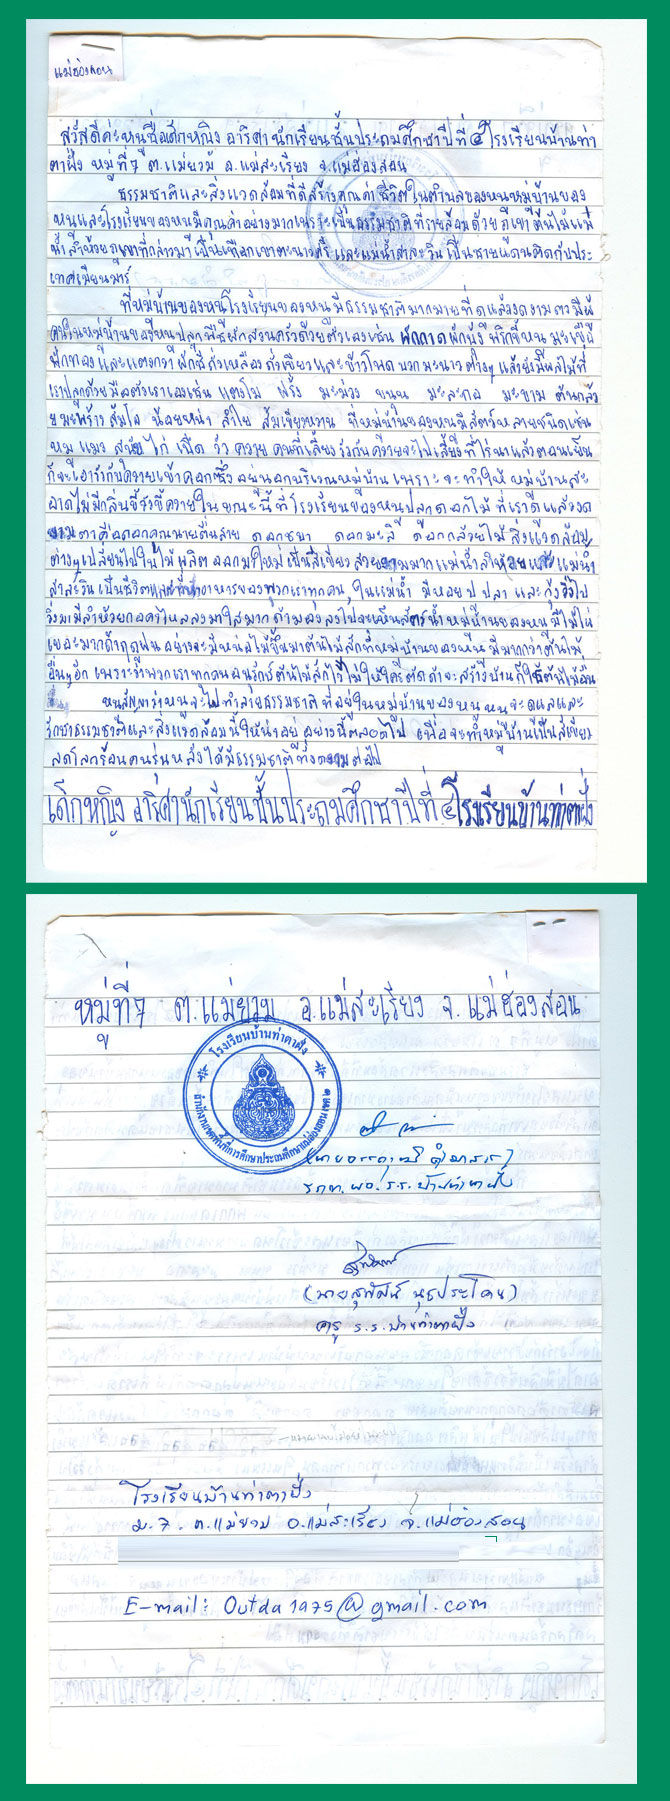 แม่ฮ่องสอน
สวัสดีค่ะหนูชื่อเด็กหญิง อาริศา นักเรียนชั้นประถมศึกษาปีที่ ๕ โรงเรียนบ้านท่า
ตาฝั่ง หมู่ที่ 7 ต.แม่ยวม อ.แม่สะเรียง จ.แม่ฮ่องสอน
ธรรมชาติและสิ่งแวดล้อมที่ดีสร้างคุณค่าชีวิตในตำบลของหนูหมู่บ้านของ
หนูและโรงเรียนของหนูมีคุณค่าอย่างมากเพราะเป็นธรรมชาติที่รายล้อมด้วยภูเขาต้นไม้แม่
น้ำลำห้วยภูเขาที่กล่าวมาเป็นเทือกเขาตะนาวศรีและแม่น้ำสาละวินเป็นชายแดนติดกับประ
เทศเมียนมาร์
ที่หมู่บ้านของหนูโรงเรียนของหนูมีธรรมชาติมากมายที่ดูแล้วงดงามตามีผู้
คนในหมู่บ้านของหนูปลูกพืชผักสวนครัวด้วยตัวเองเช่น ผักกาดผักบุ้ง พริกขี้หนู มะเขือ
ฟักทองและแตงกวาผักชีถั่วเหลืองถั่วเขียวและข้าวโพด บวกมะนาวต่างๆแล้วยังมีผลไม้ที่
เราปลูกด้วยมือตัวเราเองเช่น แตงโม ฝรั่ง มะม่วง ขนุน มะละกอ มะขาม ต้นกล้ว
ย มะพร้าว ส้มโอ น้อยหน่า ลำไย ส้มเขียวหวาน ที่หมู่บ้านของหนูมีสัตว์หลายชนิดเช่น
หมู แมว สุนัข ไก่ เป็ด วัว ควาย คนที่เลี้ยงวัวกับควายจะไปเลี้ยงที่ไร่นาแล้วตอนเย็น
ก็จะเอาวัวกับควายเข้าคอกซึ่งอยู่นอกบริเวณหมู่บ้าน เพราะจะทำให้หมู่บ้านสะ
อาดไม่มีกลิ่นขี้วัวขี้ควายในขณะนี้ที่โรงเรียนของหนูปลูกดอกไม้ที่เราดูแล้วงด
งามตาคือดอกคุณนายตื่นสาย ดอกชบา ดอกมะลิ ดอกกล้วยไม้ สิ่งแวดล้อม
ต่างๆเปลี่ยนไปใบไม้ผลิตออกมาใหม่เป็นสีเขียวสวยงามมากแม่น้ำลำห้วยและแม่น้ำ
สาละวินเป็นชีวิตและที่หาอาหารของพวกเราทุกคนในแม่น้ำ มีหอย ปู ปลา และกุ้งวิ่งไป
วิ่งมามีลำห้วยภูเขาไหลลงมาใสมากถ้ามองลงไปจะเห็นสัตว์น้ำหมู่บ้านของหนูมีไม้ไผ่
เยอะมากถ้าฤดูฝนอย่างจะมีหน่อไม้ขึ้นมาต้นไม้สักที่หมู่บ้านของหนูมีมากกว่าต้นไม้
อื่นๆอีก เพราะว่าพวกเราทุกคนอนุรักษ์ต้นไม้สักไว้ไม่ให้ใครตัดถ้าจะสร้างบ้านก็ใช้ต้นไม้อื่น
หนูสัญญาว่าหนูจะไม่ทำลายธรรมชาติที่อยู่ในหมู่บ้านของหนู หนูจะดูแลและ
รักษาธรรมชาติและสิ่งแวดล้อมนี้ให้น่าอยู่อย่างนี้ตลอดไป เพื่อจะทำหมู่บ้านเป็นสีเขียว
ลดโลกร้อนคนรุ่นหลังได้มีธรรมชาติที่งดงามต่อไป
เด็กหญิง อาริศานักเรียนชั้นประถมศึกษาปีที่ ๕ โรงเรียนบ้านท่าตาฝั่ง
หมู่ที่ 7 ต.แม่ยวม อ.แม่สะเรียง จ.แม่ฮ่องสอน
โรงเรียนบ้านท่าตาฝั่ง
สำนักงานเขตพื้นที่การศึกษาประถมศึกษาแม่ฮ่องสอน เขต ๒
รกท.ผอ.ร.ร.บ้านท่าตาฝั่ง
ครู ร.ร.บ้านท่าตาฝั่ง
โรงเรียนบ้านท่าตาฝั่ง
ม.7 ต.แม่ยวม อ.แม่สะเรียง จ.แม่ฮ่องสอน
E-mail: Outda1975@gmail.com